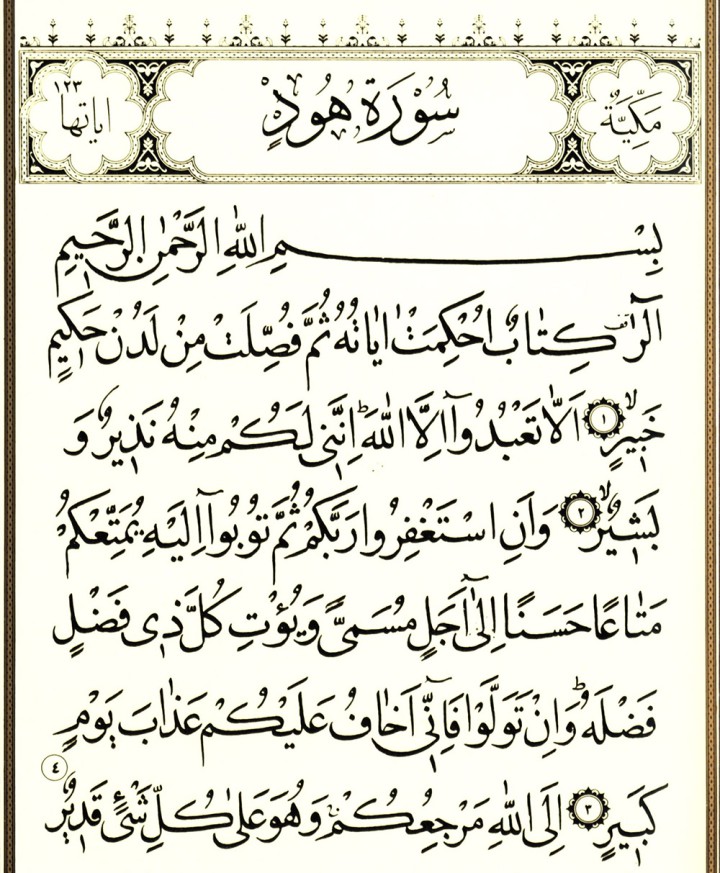 مَكِّيَّةٌ سُورَةُ هُودٍ اياتها ١٢٣
بِسْمِ اللّٰهِ الرَّحْمٰنِ الرَّحٖيمِ
الٓرٰ كِتَابٌ اُحْكِمَتْ اٰيَاتُهُ ثُمَّ فُصِّلَتْ مِنْ لَدُنْ حَكٖيمٍ
خَبٖيرٍۙ ١ اَلَّا تَعْبُدُٓوا اِلَّا اللّٰهَؕ اِنَّنٖي لَكُمْ مِنْهُ نَذٖيرٌ وَ
بَشٖيرٌۙ ٢ وَاَنِ اسْتَغْفِرُوا رَبَّكُمْ ثُمَّ تُوبُٓوا اِلَيْهِ يُمَتِّعْكُمْ
مَتَاعًا حَسَنًا اِلٰٓى اَجَلٍ مُسَمًّى وَيُؤْتِ كُلَّ ذٖى فَضْلٍ
فَضْلَهُؕ وَاِنْ تَوَلَّوْا فَاِنّٖٓى اَخَافُ عَلَيْكُمْ عَذَابَ يَوْمٍ
كَبٖيرٍ ٣ اِلَى اللّٰهِ مَرْجِعُكُمْۚ وَهُوَ عَلٰى كُلِّ شَيْءٍ قَدٖيرٌ ٤